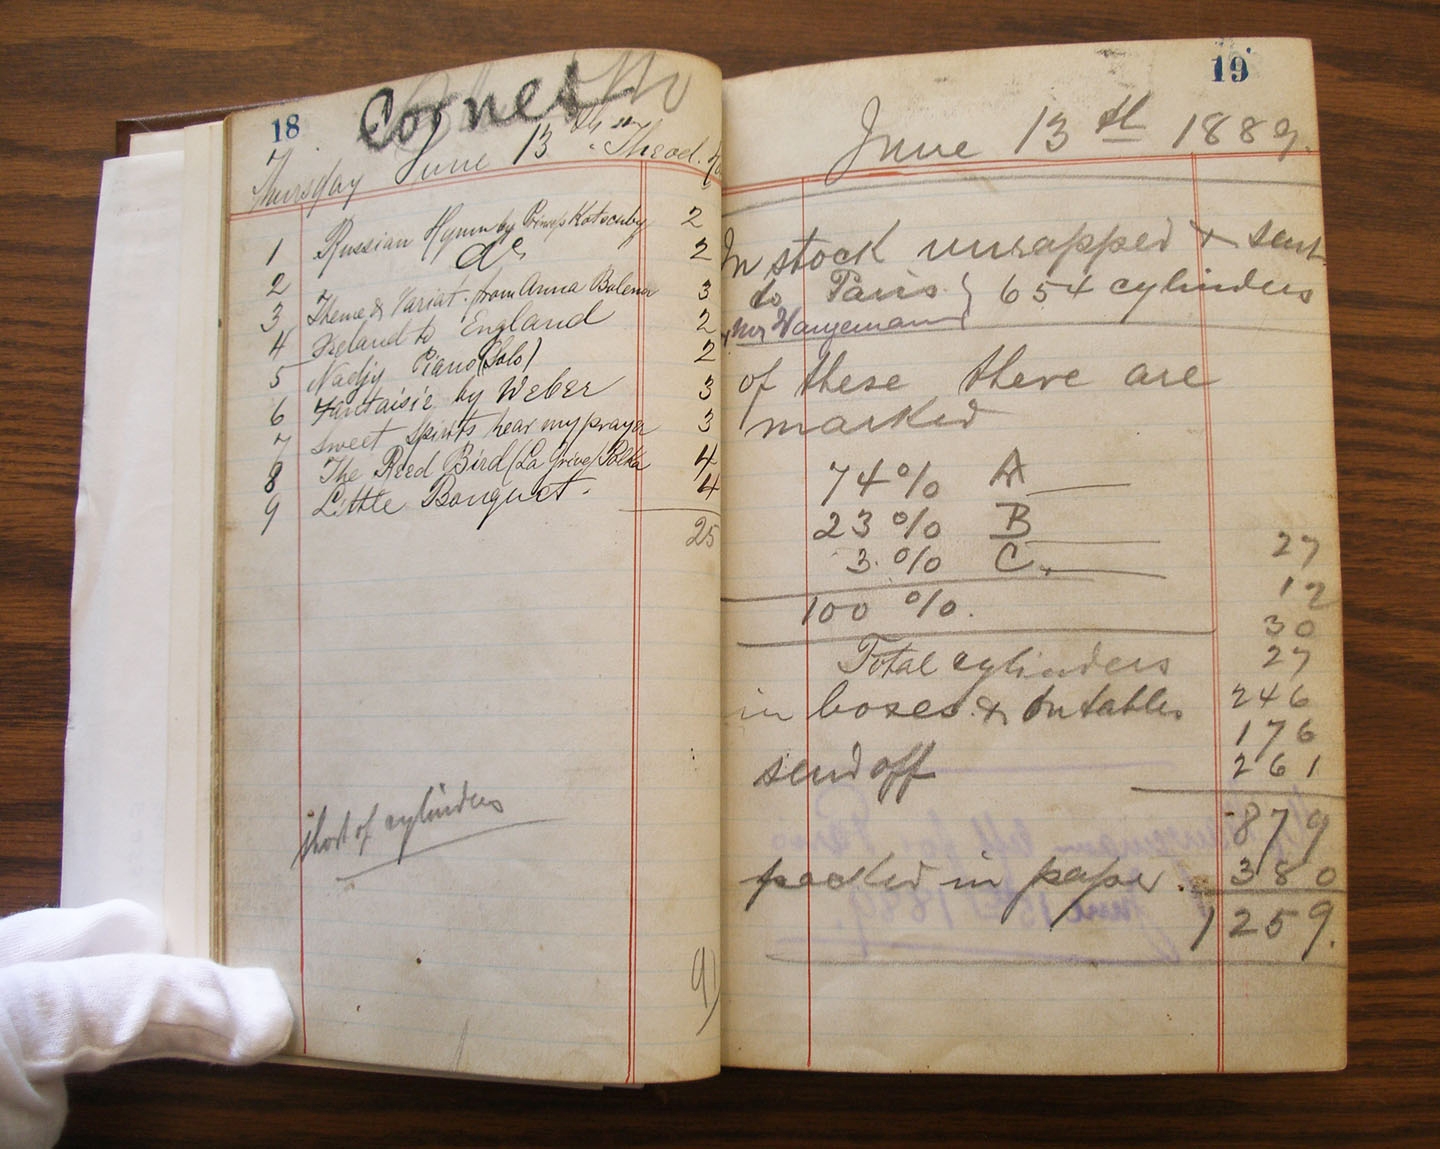 18
Cornet
Thursday June 13th Theod.
1 Russian Hymn by Prince Kotschuby 2
2 do 2
3 Theme & Variat. from Anna Bolena 3
4 Ireland to England 2
5 Nadjy Piano (Solo) 2
6 Fantaisie by Weber 3
7 Sweet spirits hear my prayer 3
8 The Reed Bird (La Grive) Polka 4
9 Little Bouquet. 4
25
short of cylinders
9)
19
June 13th 1889.
In stock unwrapped & sent
to Paris } 654 cylinders
Mr Wangemann
of these there are
marked
74% A
23% B
3.% C.
100 %.
27
12
30
Total cylinders 27
in boxes & on tables 246
176
send off 261
879
packed in paper 380
1259.